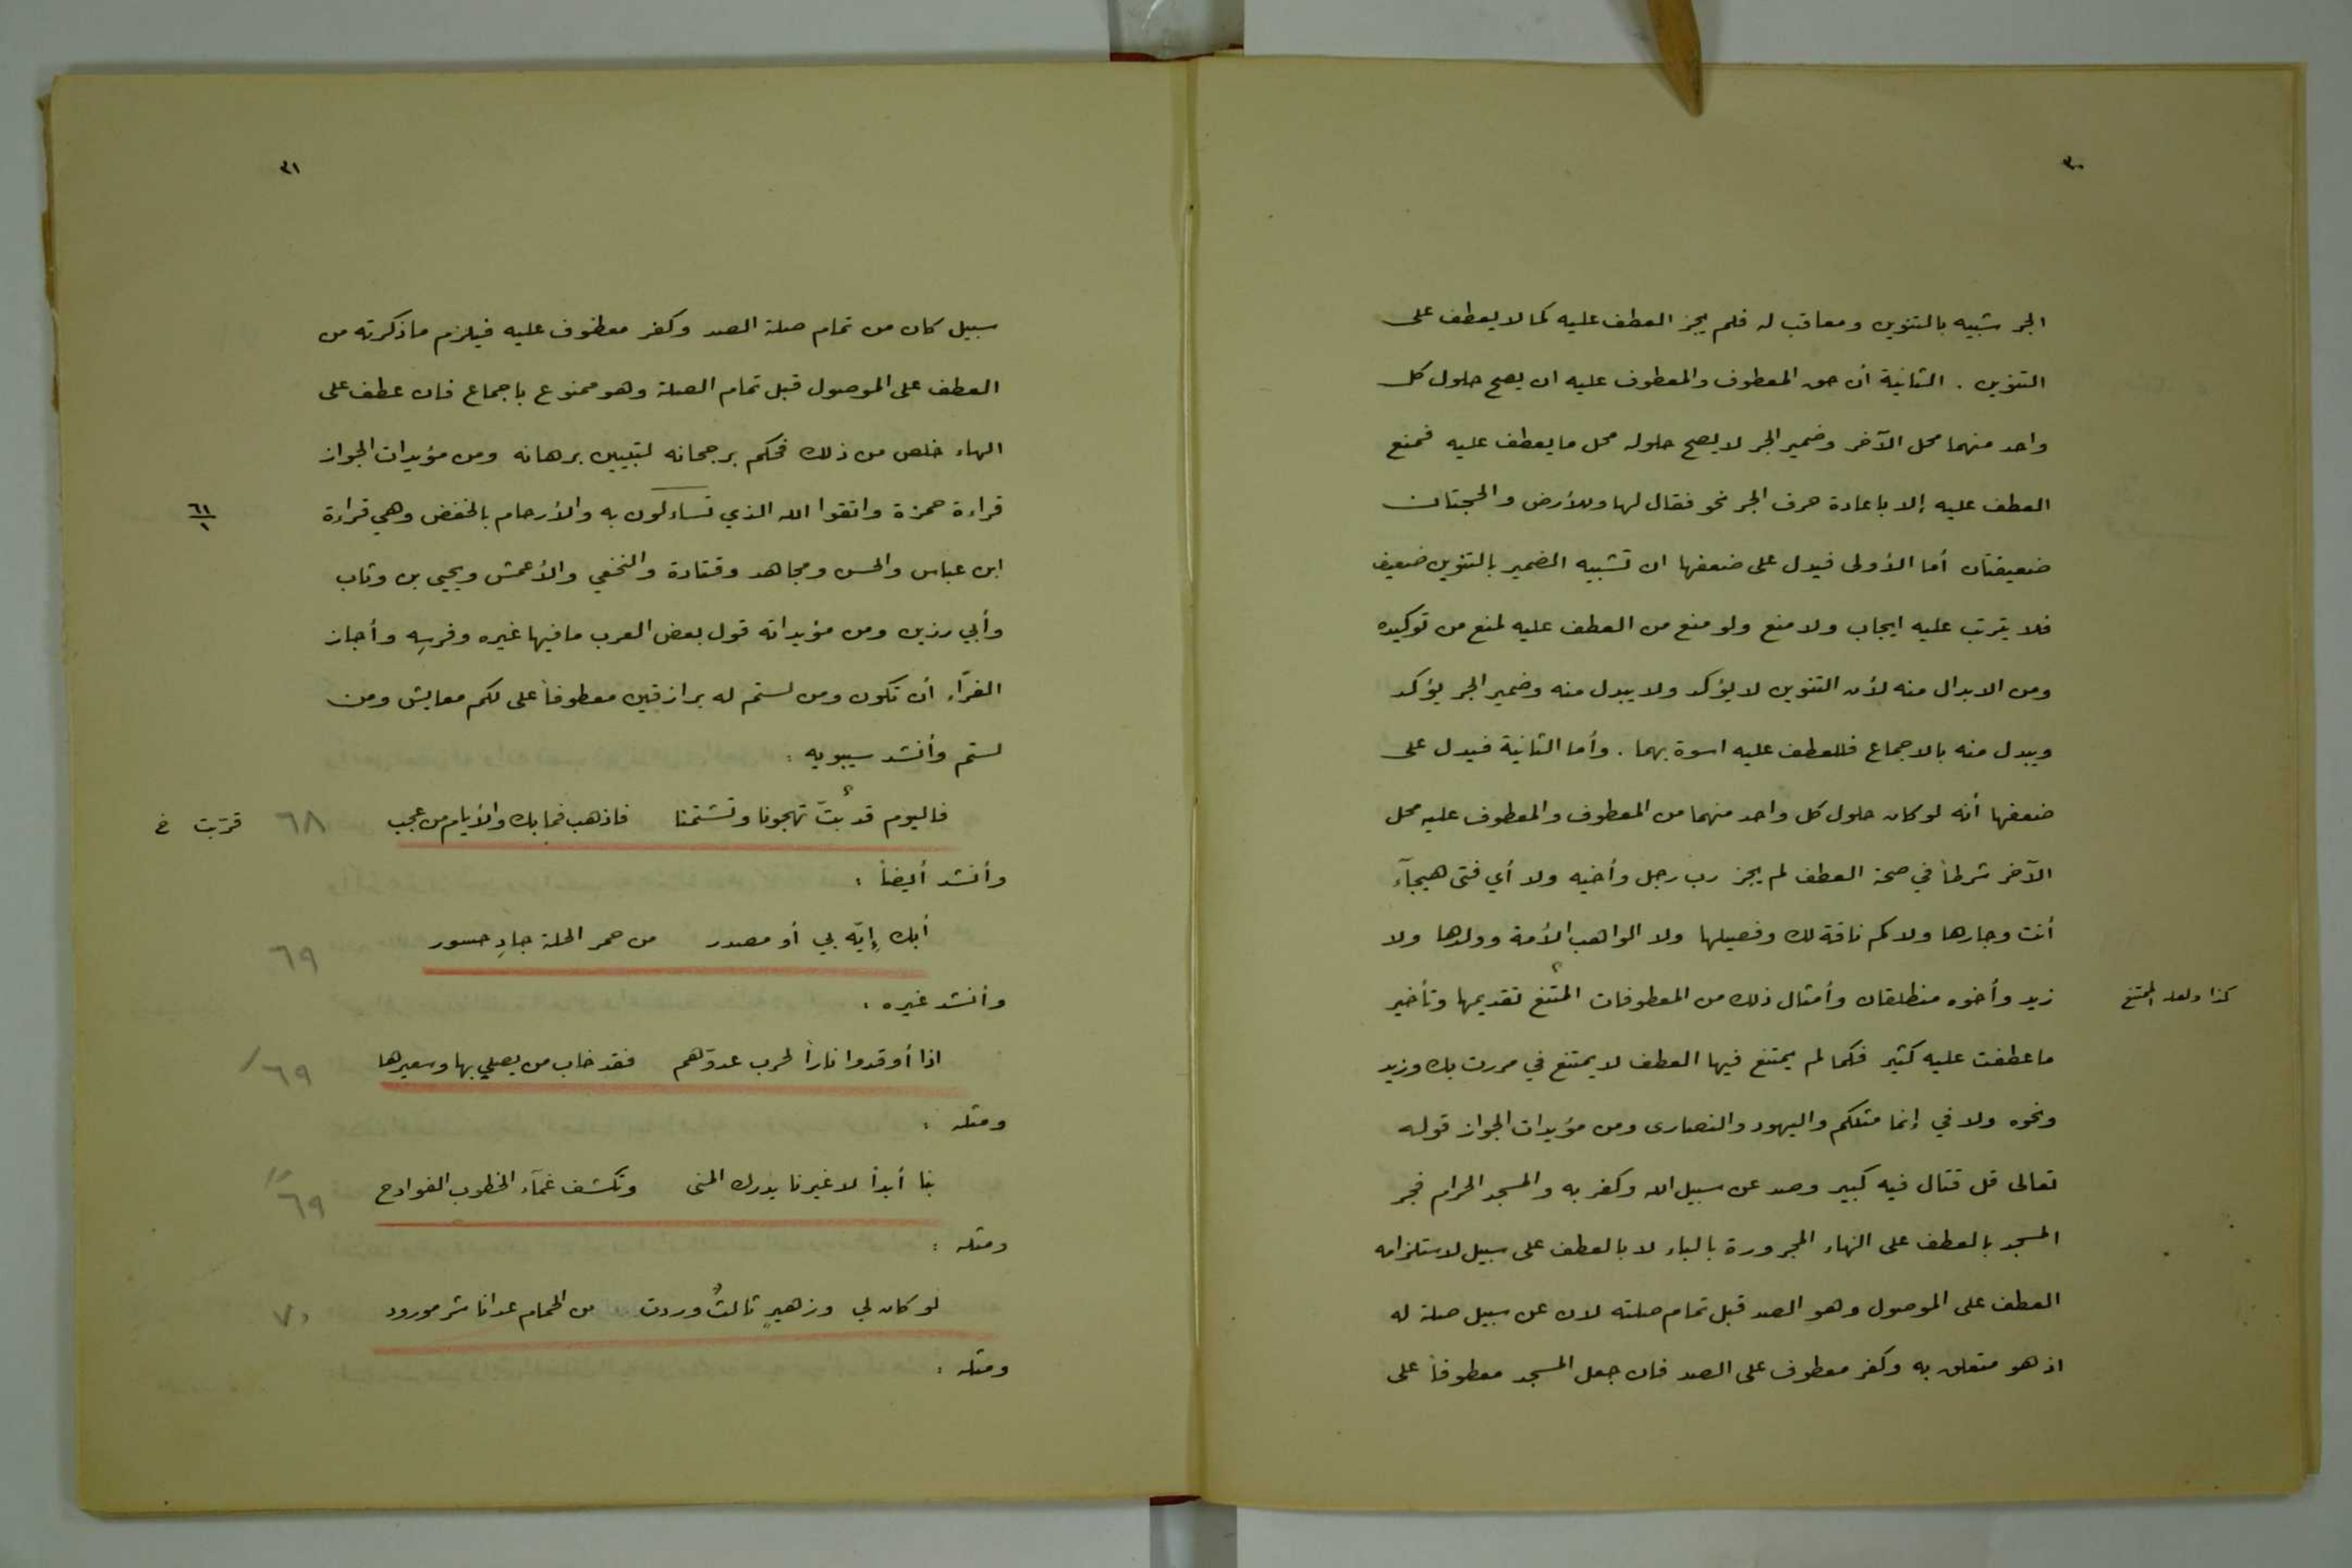 ٣٠
الجر شبيه بالتنوين ومعاقب له فلم يجز العطف عليه كما لا يعطف على
التنوين . الثانية أن حق المعطوف والمعطوف عليه ان يصح حلول كل
واحد منهما محل الآخر وضمير الجر لا يصح حلوله محل ما يعطف عليه فمنع
العطف عليه إلا باعادة حرف الجر نحو فقال لها وللأرض والحجتان
ضعيفتان أما الأولى فيدل على ضعفها ان تشبيه الضمير بالتنوين ضعيف
فلا يترتب عليه ايجاب ولا منع ولو منع من العطف عليه لمنع من توكيده
ومن الابدال منه لأن التنوين لا يؤكد ولا يبدل منه وضمير الجر يؤكد
ويبدل منه بالاجماع فللعطف عليه اسوة بهما . وأما الثانية فيدل على
ضعفها أنه لو كان حلول كل واحد منهما من المعطوف والمعطوف عليه محل
الآخر شرطاً في صحة العطف لم يجز رب رجل وأخيه ولا أي فتى هيجآء
أنت وجارها ولا كم ناقة لك وفصيلها ولا الواهب الأمة وولدها ولا
زيد وأخوه منطلقان وأمثال ذلك من المعطوفات المتنع؟ تقديمها وتأخير
كذا ولعله الممتنع
ما عطفت عليه كثير فكما لم يمتنع فيها العطف لا يمتنع في مررت بك وزيد
ونحوه ولا في إنما مثلكم واليهود والنصارى ومن مؤيدات الجواز قوله
تعالى قل قتال فيه كبير وصد عن سبيل الله وكفر به والمسجد الحرام فجر
المسجد بالعطف على الهاء المجرورة بالباء لا بالعطف على سبيل لاستلزامه
العطف على الموصول وهو الصد قبل تمام صلته لان عن سبيل صلة له
اذ هو متعلق به وكفر معطوف على الصد فان جعل المسجد معطوفاً على
٣١
سبيل كان من تمام صلة الصد وكفر معطوف عليه فيلزم ما ذكرته من
العطف على الموصول قبل تمام الصلة وهو ممنوع باجماع فان عطف على
الهاء خلص من ذلك فحكم برجحانه لتبيين برهانه ومن مؤيدات الجواز
قراءة حمزة واتقوا الله الذي تساءلون به والأرحام بالخفض وهي قراءة
٦١/١
ابن عباس والحسن ومجاهد وقتادة والنخعي والأعمش ويحيى بن وثاب
وأبي رزين ومن مؤيداته قول بعض العرب ما فيها غيره وفرسِه وأجاز
الفرّاء أن تكون ومن لستم له برازقين معطوفاً على لكم معايش ومن
لستم وأنشد سيبويه :
فاليوم قد بتّ؟ تهجونا وتشتمنا فاذهب فما بك والأيام من عجب ٦٨ قرّبت خ
وأنشد أيضاً :
أبك إيّه بي أو مصدر من حمر الحلة جادٍ حسور ٦٩
وأنشد غيره :
اذا أوقدوا ناراً لحرب عدوّهم فقد خاب من يصلي بها وسعيرها ٦٩/
ومثله :
بنا أبداً لا غيرنا يدرك المنى وتكشف غمآء الخطوب الفوادح ٦٩//
ومثله :
لو كان لي وزهيرٍ ثالثٌ وردت من الحمام عدانا شر مورود ٧٠
ومثله :